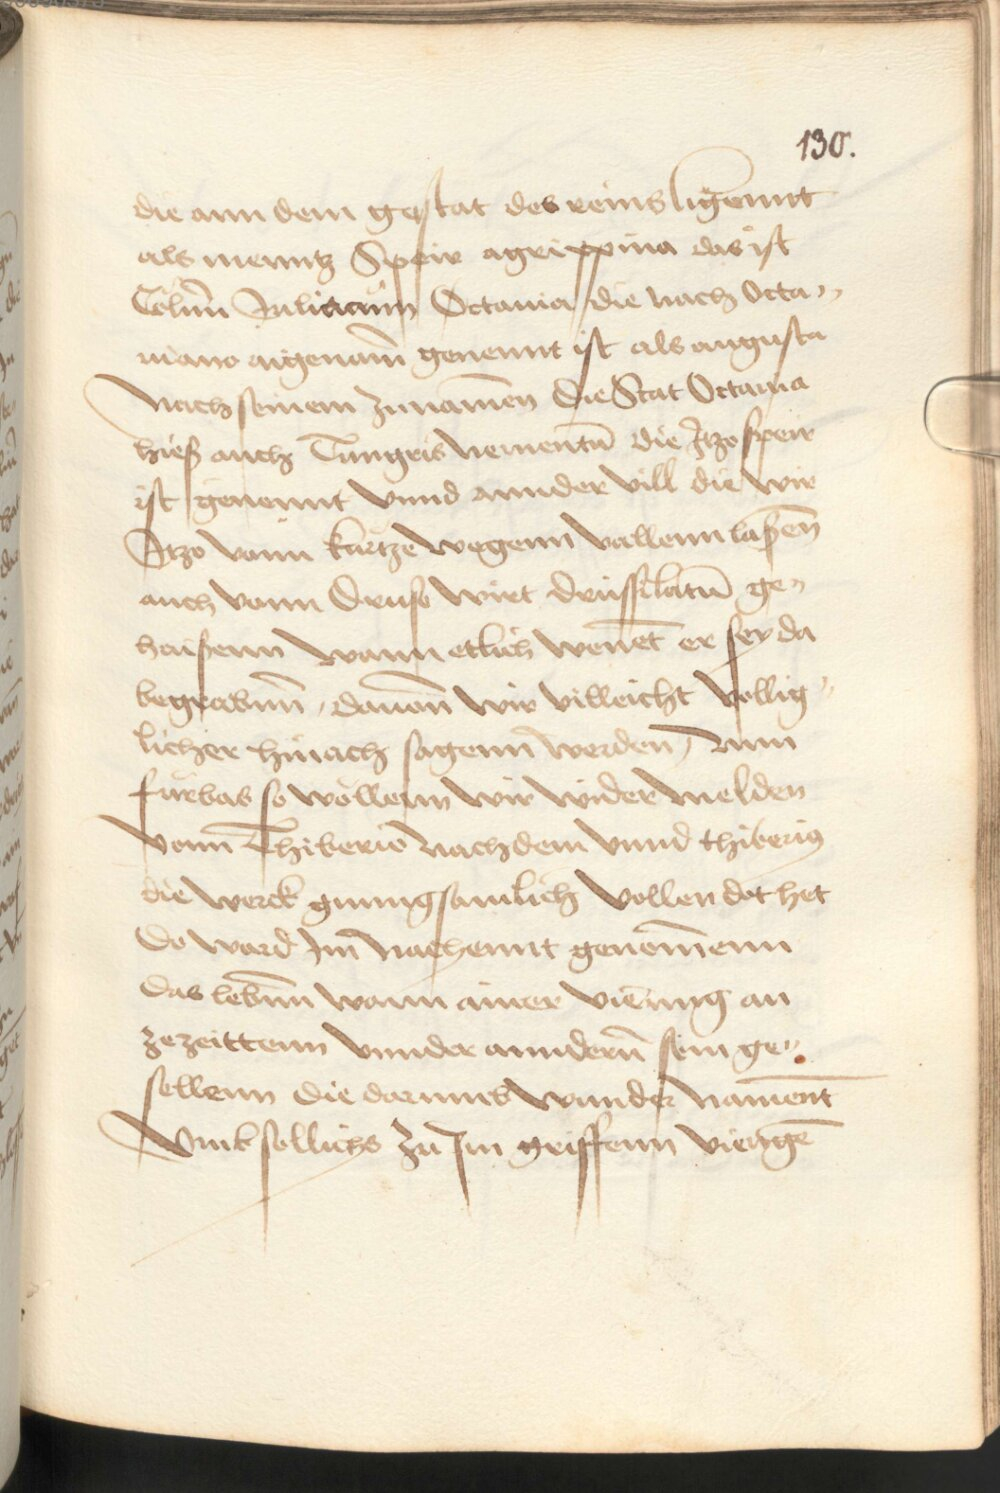 130.
die ann dem gestat des reins ligennt
als menntz Speir agrippina das ist
Cölnn̄ Juliacum Octauia die nach Octa„
uiano aigenam̄ genennt ist als augusta
Nach seinem zunamen̄ die Stat Octauia
hieß auch Tungris nementū die Itzo speir
ist genennt vnnd annder vill die wir
Itzo vonn kürtze wegenn vallenn laßen̄
auch vonn Druso wirt drussilatū ge„
haißenn wann etlich wenēt er sey da
begrabnn̄, dauon̄ wir villeicht vollig„
licher hinach sagenn werden, Nun
fürbas so wöllenn wir wider melden
vonn̄ Thiberio nachdem vnnd thiberiꝯ
die werck gnungsamlich vollendet het
Do ward Im̄ nachennt genom̄enn
das lebnn̄ wann ainer vieng an
zezeittenn vnnder anndern̄ sein ge„
sellenn die darumb wunder namen̄t
vmb sollichs zu Im griffenn viengē